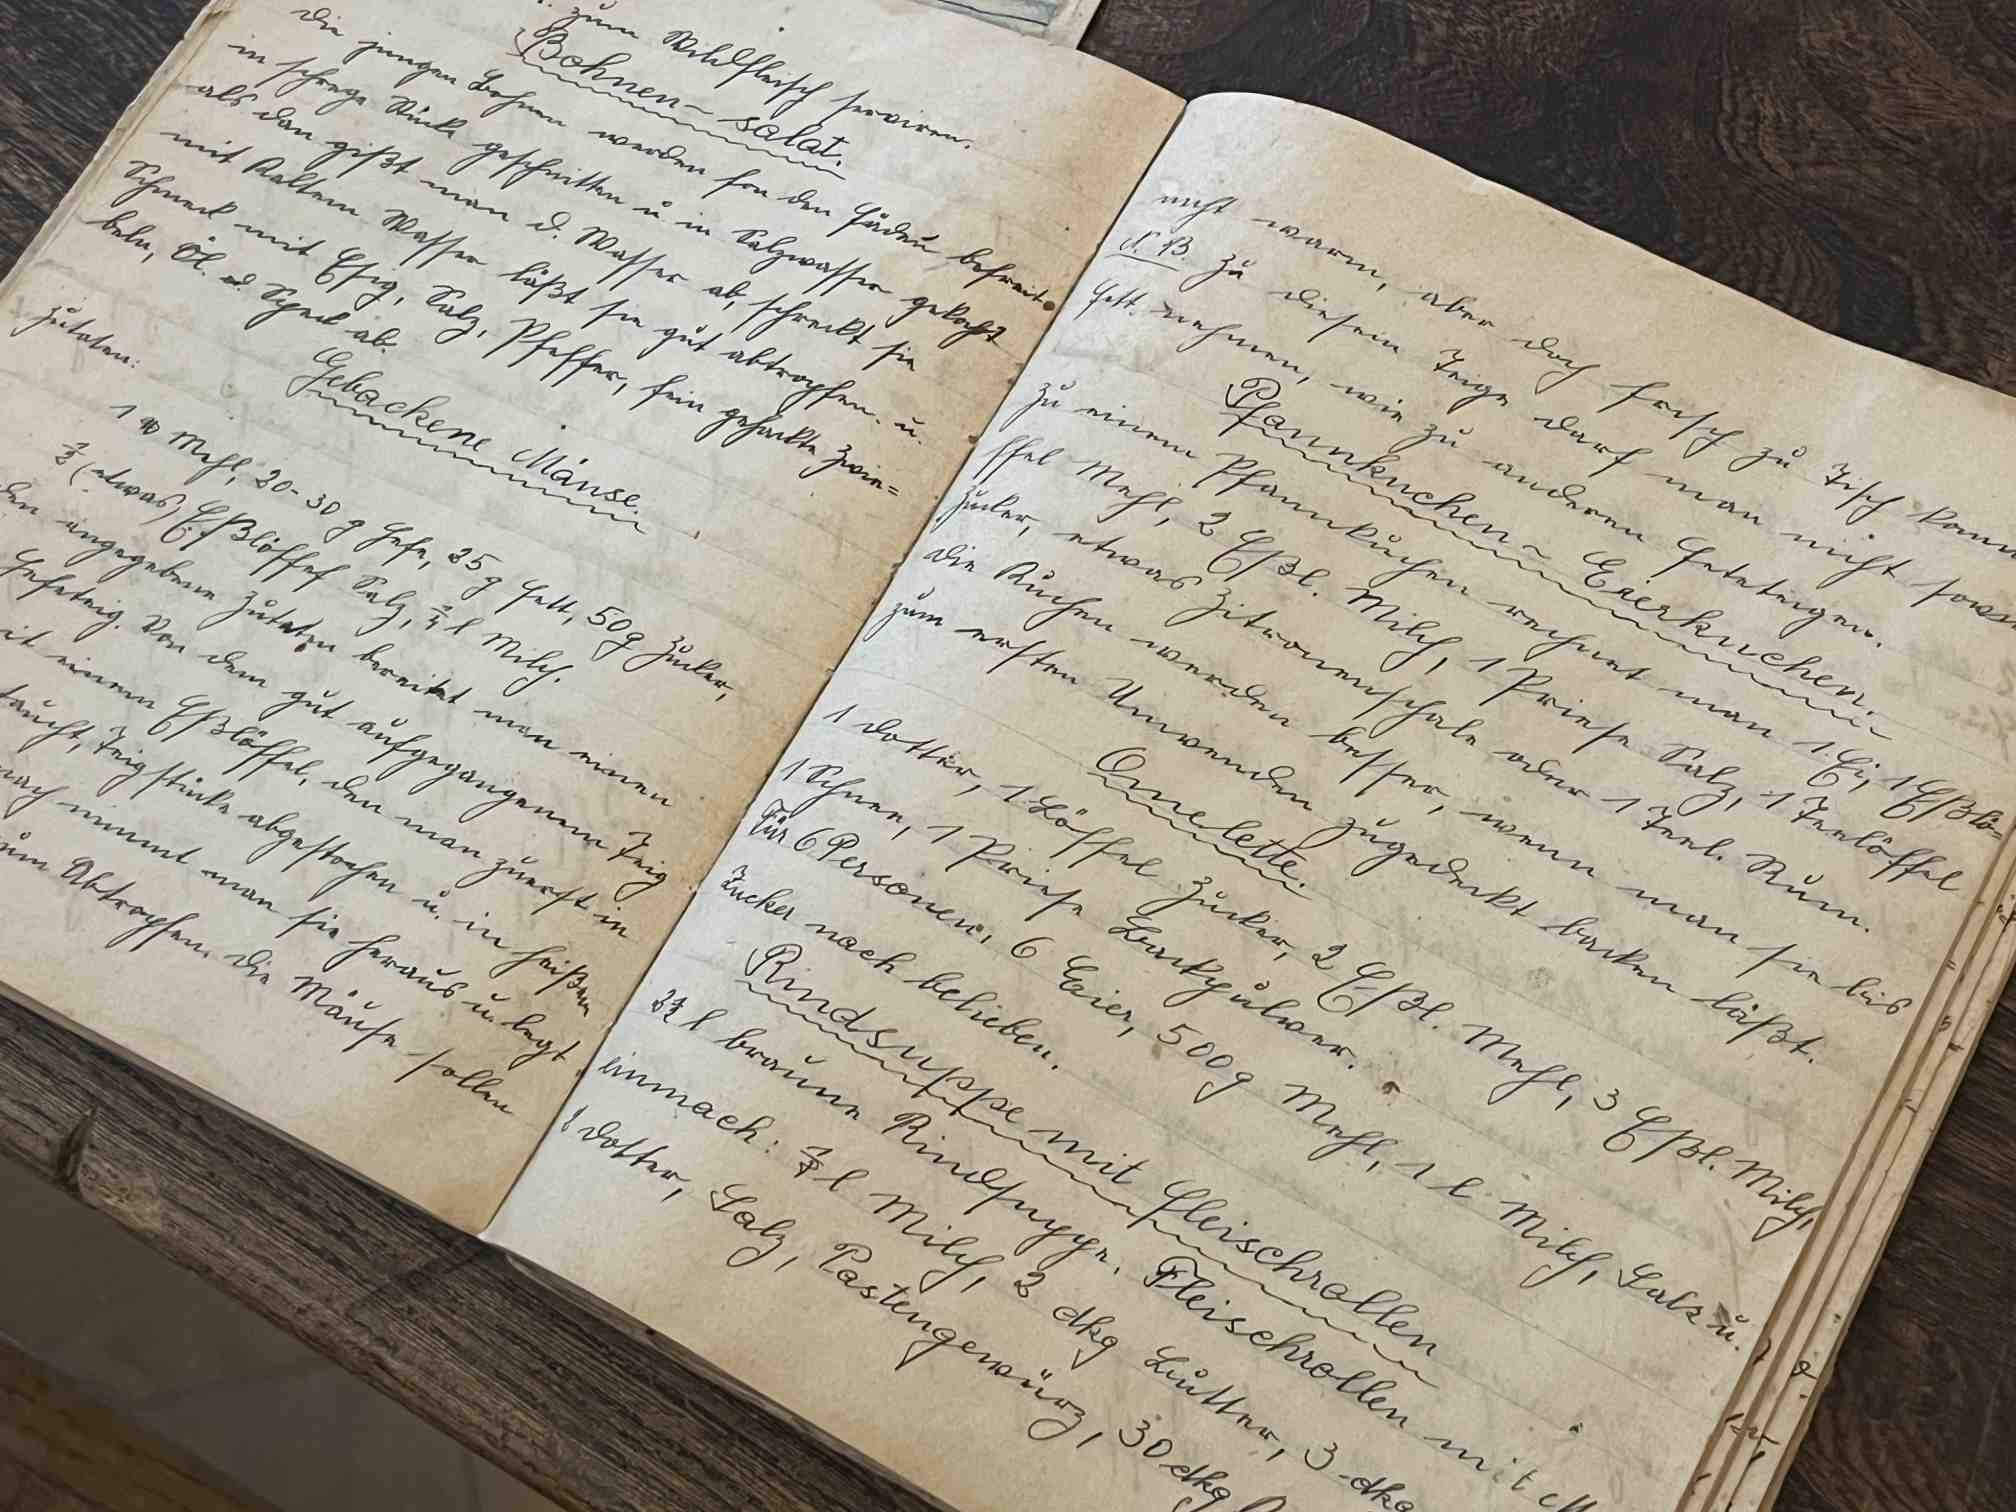 zum Wildfleisch serviren.
Bohnen-salat.
Die jungen Bohnen werden fon den Fäden befreit
in schrege Stücke geschnitten u. in Salzwasser gekocht
als dan gißt man d. Wasser ab, schreckt sie
mit Kaltem Wasser läßt sie gut abtropfen. u.
Schmeck mit Eßig, Salz, Pfeffer, fein gehackte Zwie=
beln, Öl. od. Speck ab.
Gebackene Mänse.
Zutaten:
1 Mehl, 20-30 g Hefe, 25 g Fett, 50 g Zucker,
½ (etwas) Eßlöffel Salz, ¼ l Milch.
den angegebene Zutaten bereitet man einen
Hefeteig. Von dem gut aufgegangenem Teig
mit einem Eßlöffel, den man zuerst in
taucht, Teigstücke abgestochen u. in heißem
nach nimmt man sie heraus u. legt
zum Abtropfen. Die Mäuse sollen
nicht warm, aber doch frisch zu Tisch
N.B. Zu diesem Teige darf man nicht
Fett. nehmen, wie zu anderen Hefeteigen.
Pfannkuchen-Eierkuchen.
Zu einem Pfannkuchen rechnet man 1 Ei, 1 Eßlö=
ffel Mehl, 2 Eßl. Milch, 1 Priese Salz, 1 Teelöffel
Zucker, etwas Zitronenschale oder 1 Teel. Rum.
Die Kuchen werden besser, wenn man sie bis
zum ersten Umwenden zugedeckt backen läßt.
Omelette.
1 Dotter, 1 Löffel Zucker, 2 Eßl. Mehl, 3 Eßl. Milch,
1 Schnee, 1 Priese Backpulver.
Für 6 Personen, 6 Eier, 500 g Mehl, 1 l Milch, Salz u.
Zucker nach belieben.
Rindsuppe mit Fleischrollen
l braune Rindsuppe. Fleischrollen mit
einmach: l Milch, 2 dkg Butter, 3 dkg
Dotter, Salz, Pastengewürz, 30 dkg